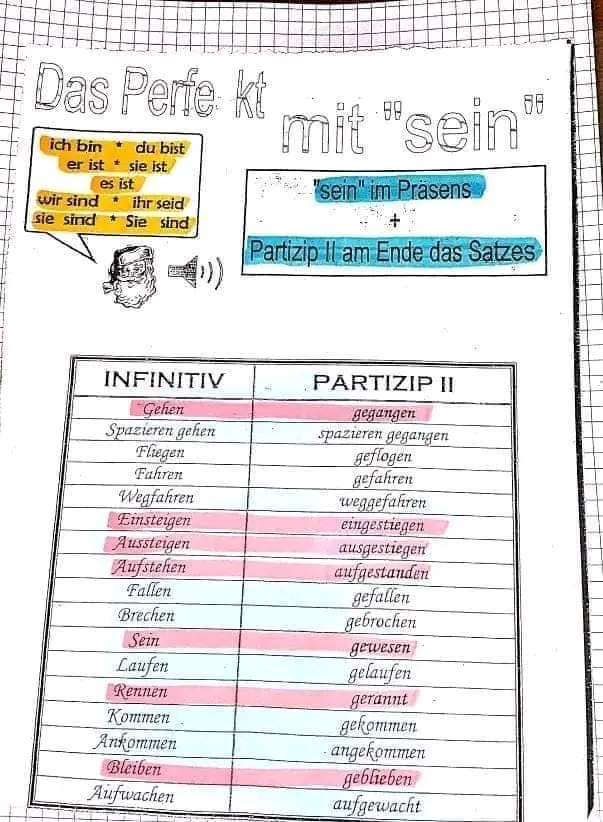 Das Perfe kt
mit "sein"
ich bin * du bist
er ist * sie ist
es ist
wir sind * ihr seid
sie sind * Sie sind
"sein" im Präsens
+
Partizip II am Ende das Satzes
INFINITIV PARTIZIP II
Gehen gegangen
Spazieren gehen spazieren gegangen
Fliegen geflogen
Fahren gefahren
Wegfahren weggefahren
Einsteigen eingestiegen
Aussteigen ausgestiegen
Aufstehen aufgestanden
Fallen gefallen
Brechen gebrochen
Sein gewesen
Laufen gelaufen
Rennen gerannt
Kommen gekommen
Ankommen angekommen
Bleiben geblieben
Aufwachen aufgewacht